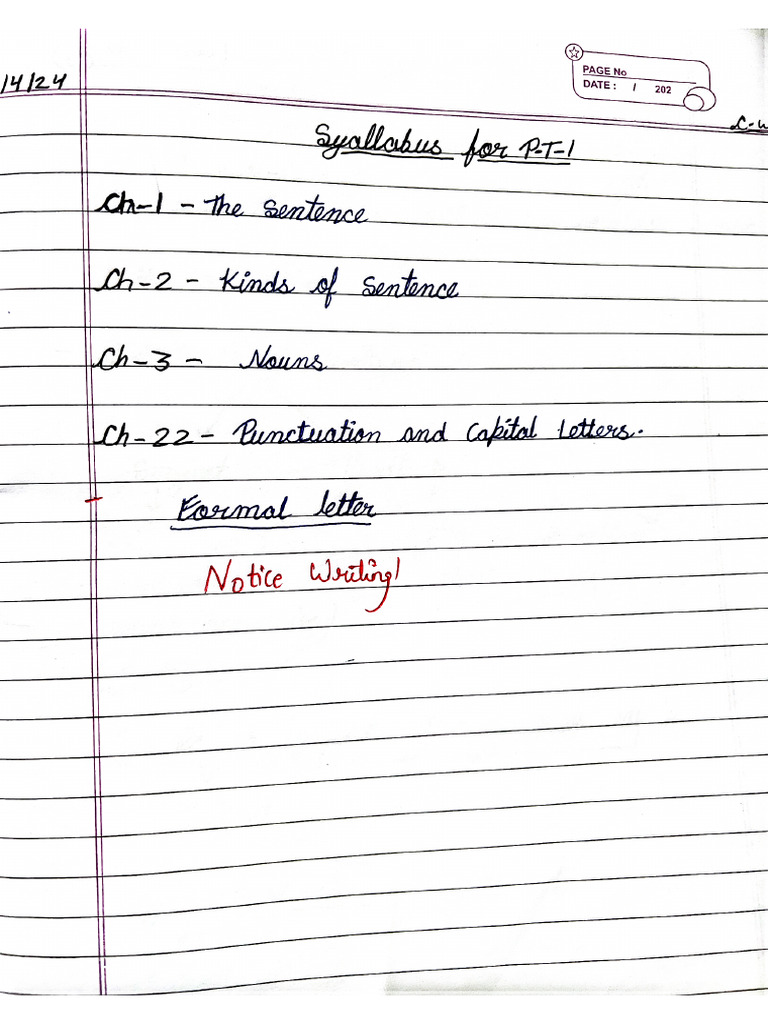 PAGE No
DATE : / 202
/4/24
C-w
Syallabus for P-T-1
Ch-1 - The Sentence
Ch-2 - Kinds of Sentence
Ch-3 - Nouns
Ch-22 - Punctuation and Capital Letters.
Formal letter
Notice Writing